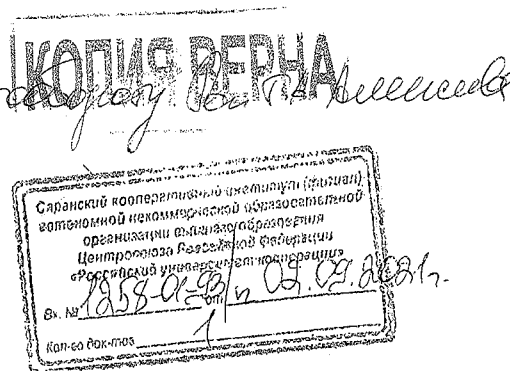 КОПИЯ ВЕРНА
Саранский кооперативный институт (филиал)
автономной некоммерческой образовательной
организации высшего образования
Центросоюза Российской Федерации
«Российский университет кооперации»
Вх. № 1258-01-92 от 02.09.2021г.
Кол-во док-тов 1